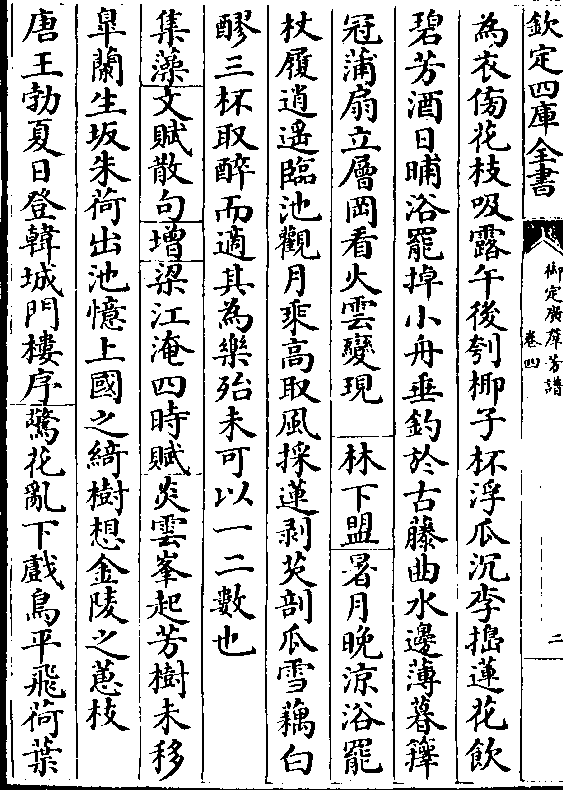 欽定四庫全書
御定廣羣芳譜
卷四
二
為衣傍花枝吸露午後刳椰子杯浮瓜沉李搗蓮花飲
碧芳酒日晡浴罷掉小舟垂釣於古藤曲水邊薄暮籜
冠蒲扇立層岡看火雲變現 林下盟 暑月晚涼浴罷
杖履逍遙臨池觀月乘高取風採蓮剥芡剖瓜雪藕白
醪三杯取醉而適其為樂殆未可以一二數也
集藻 文賦散句 增 梁江淹四時賦 炎雲峯起芳樹未移
皐蘭生坂朱荷出池憶上國之綺樹想金陵之蕙枝
唐王勃夏日登韓城門樓序 驚花亂下戲鳥平飛荷葉